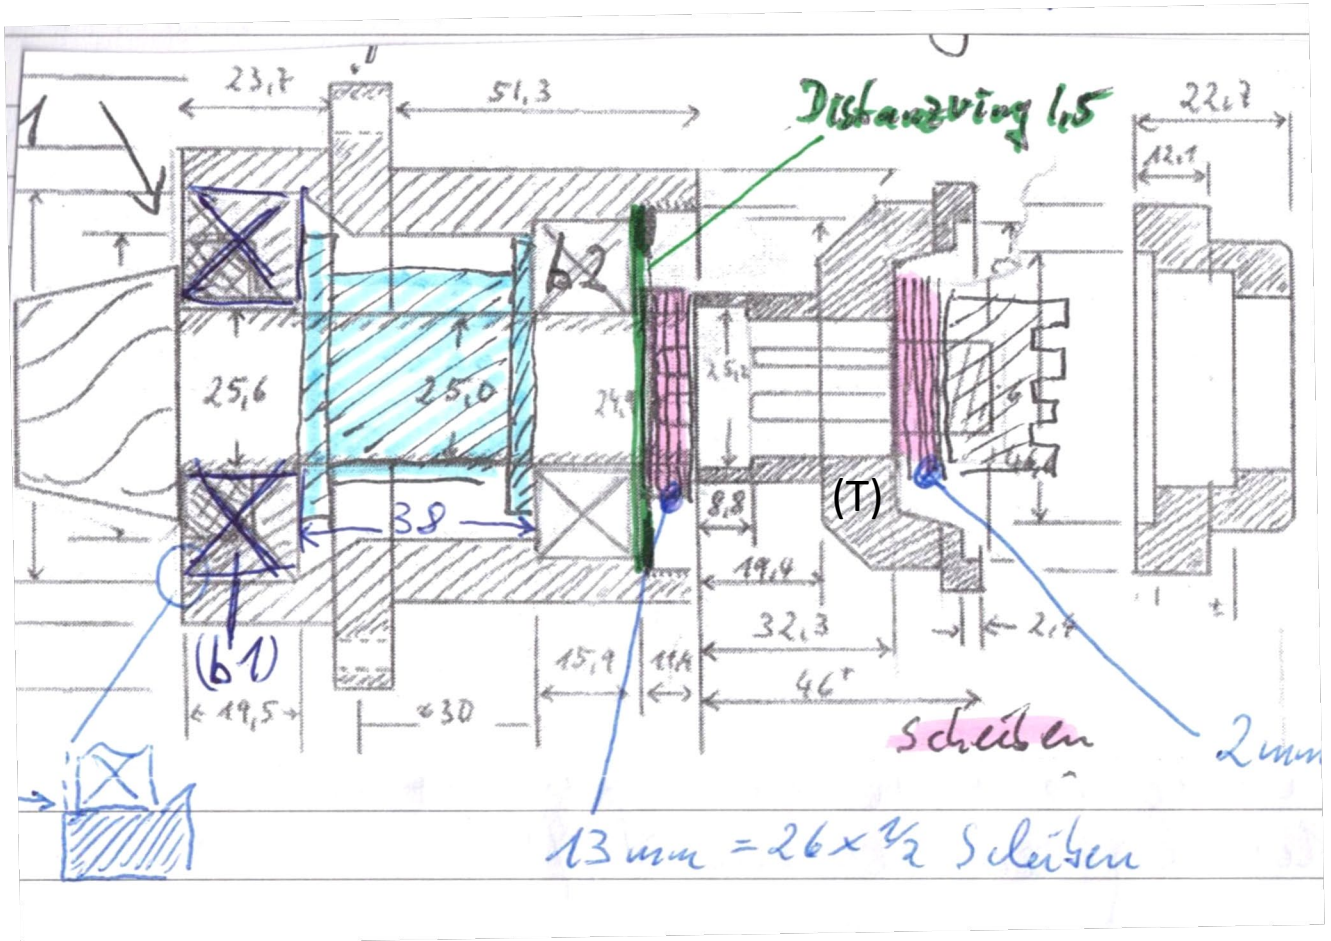 23,7
51,3
Distanzring 1,5
22,7
12,1
1
b2
25,6
25,0
24,9
25,2
38
(T)
8,8
19,4
32,3
2,4
(b1)
15,9
11,4
46+
19,5
≈30
Scheiben
2mm
13mm = 26 x ½ Scheiben